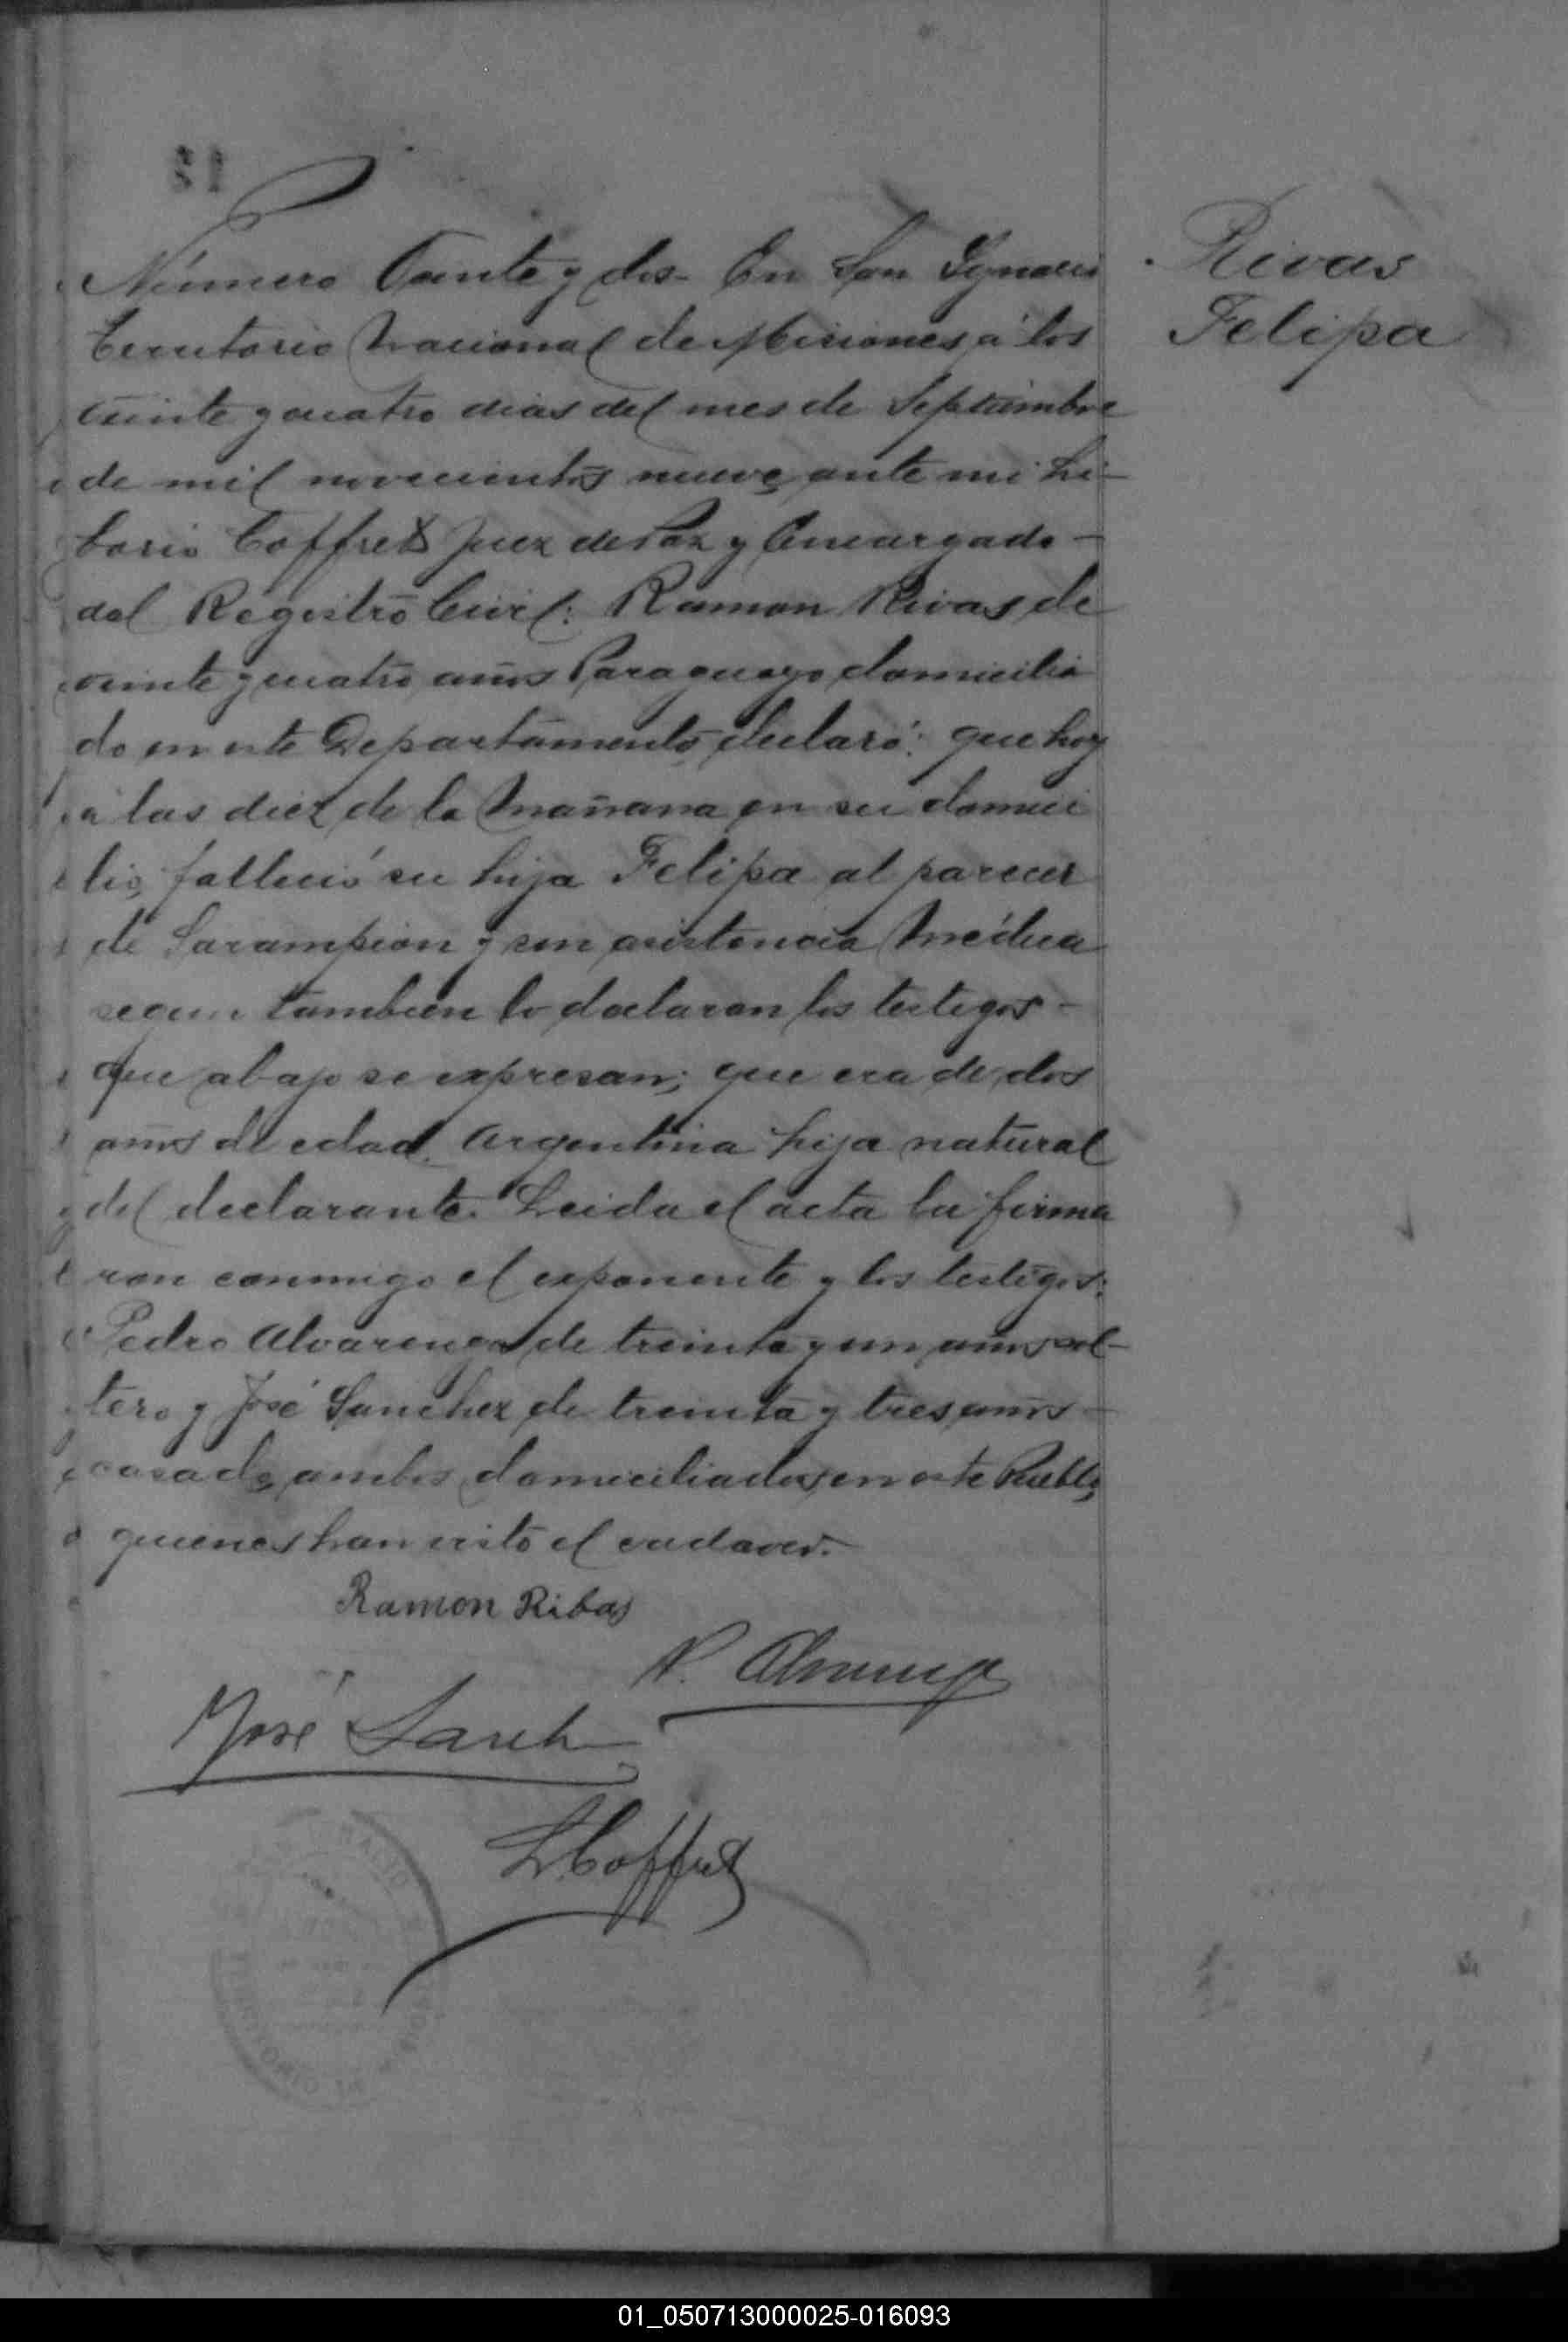 Rivas
Felipa
Número Veinte y dos- En San Ygnacio
Territorio Nacional de Misiones, á los
veinte y cuatro dias del mes de Septiembre
de mil novecientos nueve, ante mi Li-
borio Coffret Juez de Paz y Encargado-
del Registro Civil: Ramon Rivas de
veinte y cuatro años Paraguayo domicilia
do en este Departamento, declaró: que hoy
á las diez de la Mañana en su domici
lio, falleció su hija Felipa al parecer
de Sarampion y sin asistencia Médica
segun tambien lo declaran los testigos-
que abajo se expresan; que era de dos
años de edad. Argentina hija natural
del declarante. Leida el acta la firma
ron conmigo el exponente y los testigos:
Pedro Alvarenga de treinta y un años sol-
tero y José Sanchez de treinta y tres años-
casado, ambos domiciliados en este Pueblo,
quienes han visto el cadaver.-
Ramon Ribas
P. Alvarenga
José Sanch
L. Coffret
01_050713000025-016093